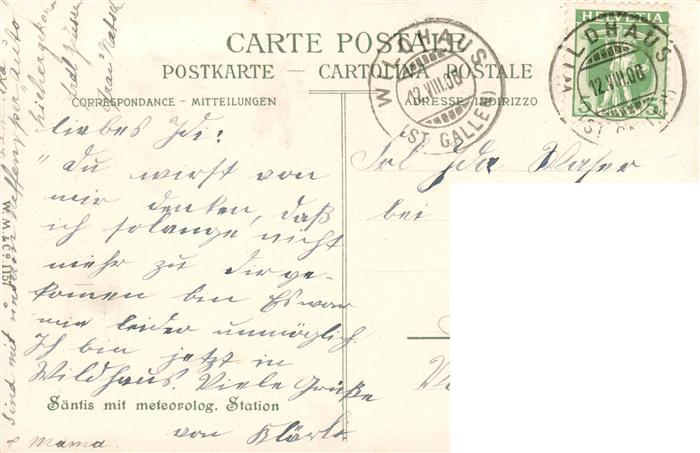 CARTE POSTALE
POSTKARTE — CARTOLINA POSTALE
CORRESPONDANCE - MITTEILUNGEN
ADRESSE - INDIRIZZO
WILDHAUS
12.VIII.08
(ST. GALLEN)
HELVETIA
5 5
WILDHAUS
12.VIII.08
(ST. GALLEN)
liebes Idi!
Du wirst von
mir denken, daß
ich solange nicht
mehr zu Dir ge-
komen bin Es war
mir leider unmöglich.
Ich bin jetzt in
Wildhaus. Viele Grüße
von Klärli
Säntis mit meteorolog. Station
& Mama.
Frl Ida
bei
W. M. & Co. 1151
Sind mit per Auto